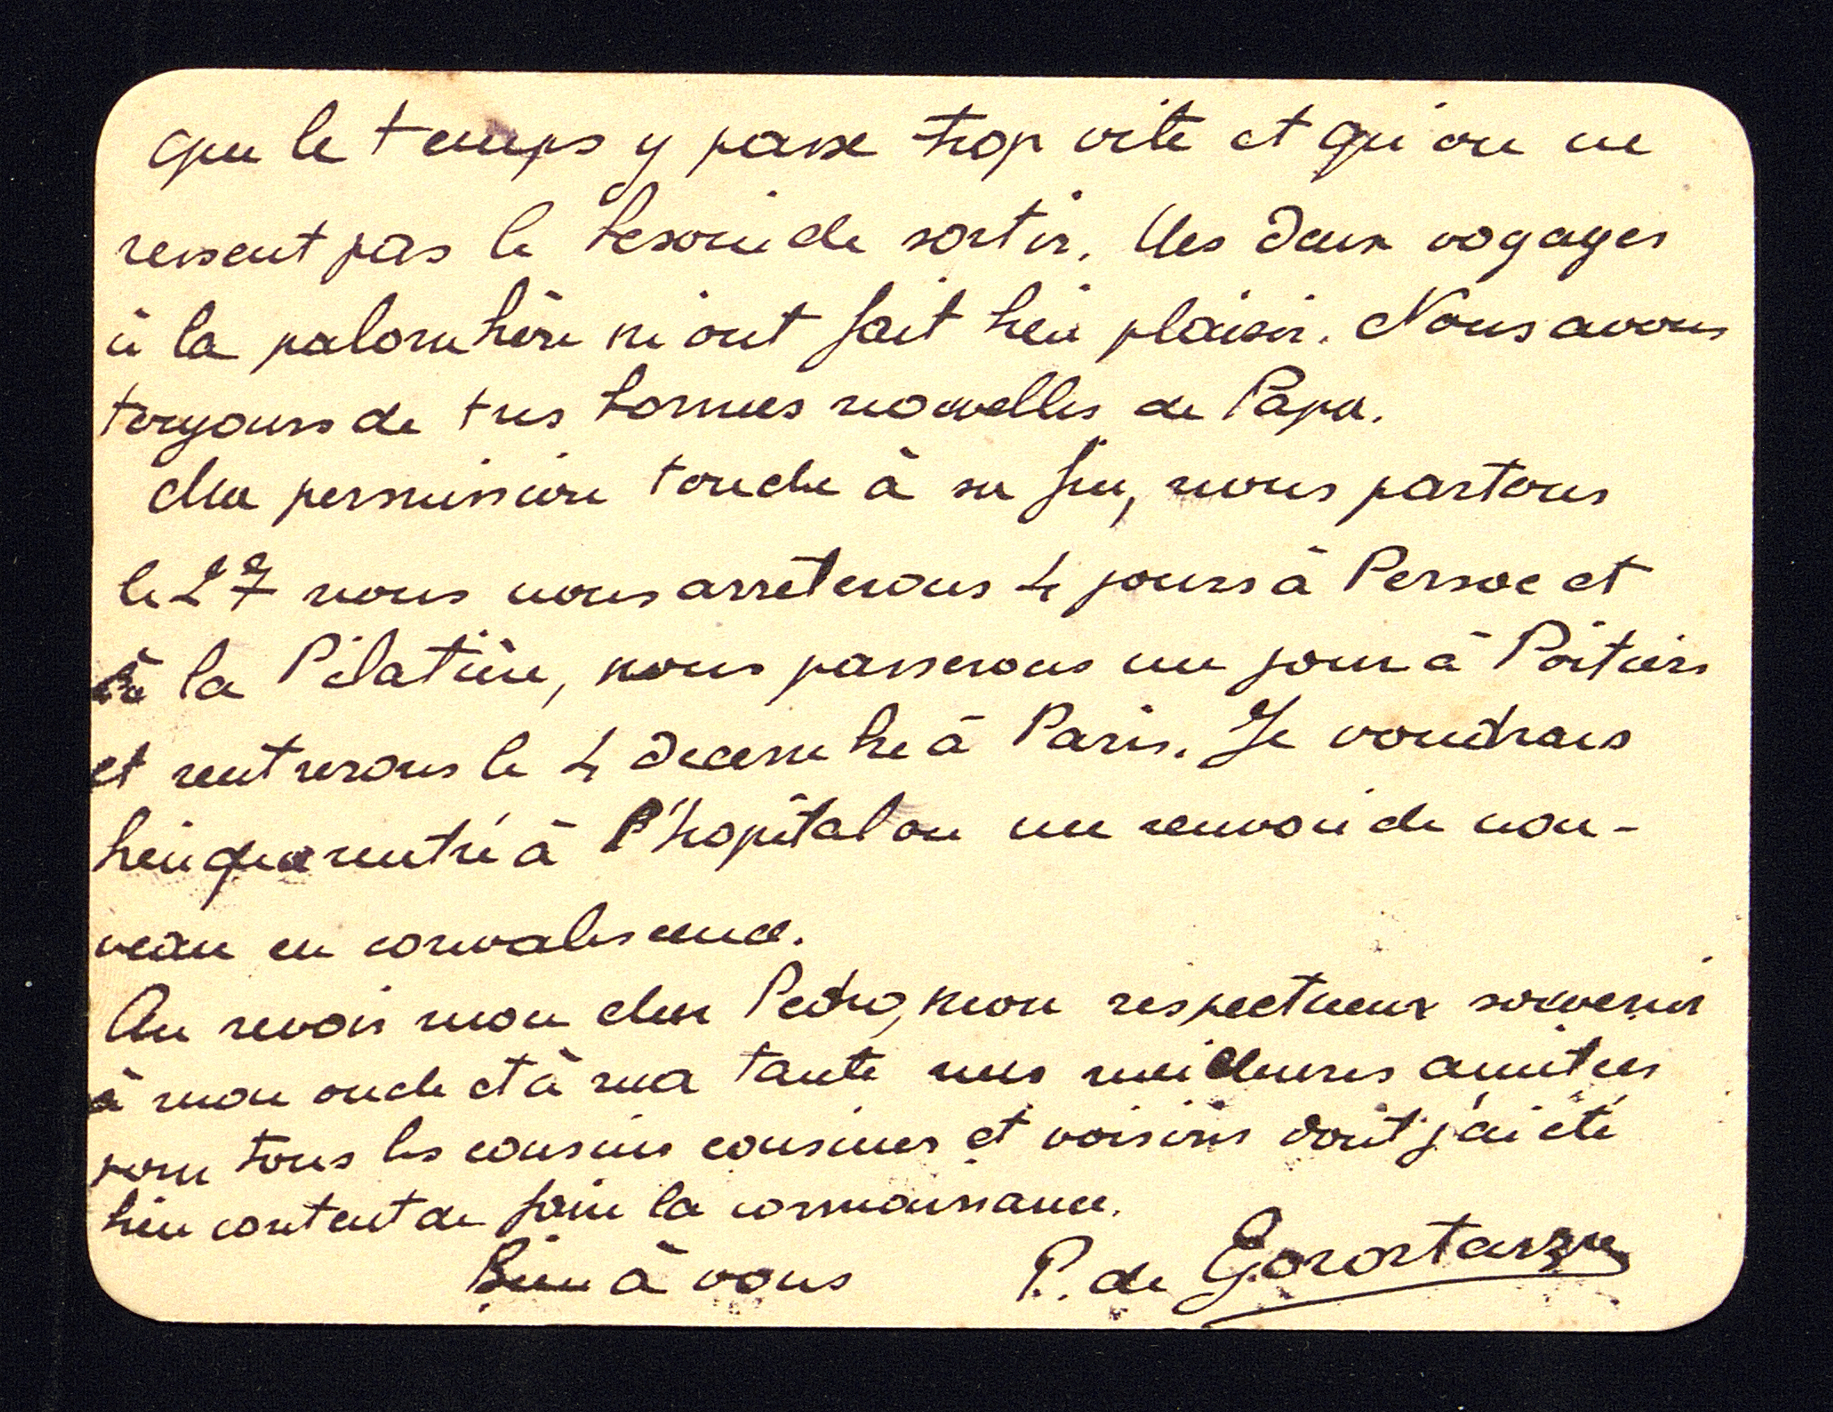 que le temps y passe trop vite et qu'on ne
ressent pas le besoin de sortir. Mes deux voyages
à la palombière m'ont fait bien plaisir. Nous avons
toujours de tres bonnes nouvelles de Papa.
Ma permission touche à sa fin, nous partons
le 27 nous nous arrêterons 4 jours à Persac et
à la Pilatière, nous passerons un jour à Poitiers
et rentrerons le 4 decembre à Paris. Je voudrais
bien que rentré à l'hopital on me renvoie de nou-
veau en convalescence.
Au revoir mon cher Pedro, mon respectueux souvenir
à mon oncle et à ma tante mes meilleures amitiés
pour tous les cousins cousines et voisins dont j'ai été
bien content de faire la connaissance.
Bien à vous P. de Gorostarzu